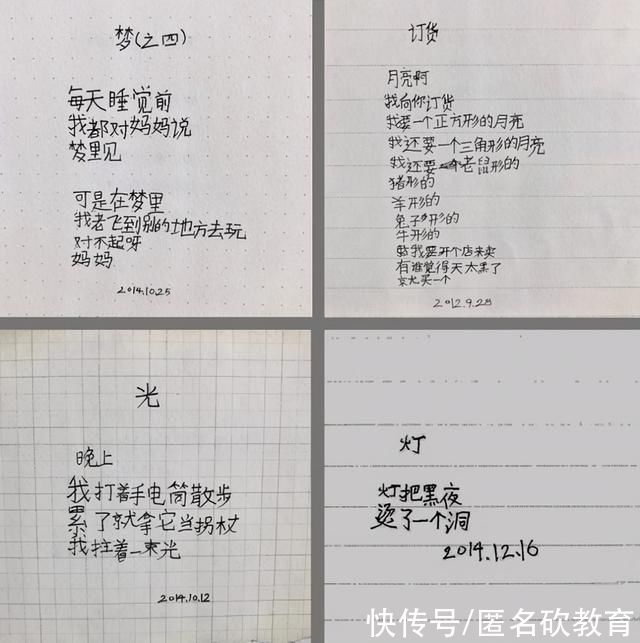 梦(之四)
每天睡觉前
我都对妈妈说
梦里见
可是在梦里
我老飞到别的地方去玩
对不起呀
妈妈
2014.10.25
订货
月亮啊
我向你订货
我要一个正方形的月亮
我还要一个三角形的月亮
我还要一个老鼠形的
猪形的
羊形的
兔子形的
牛形的
我要开个店来卖
有谁觉得天太黑了
就买一个
2012.9.28
光
晚上
我打着手电筒散步
累了就拿它当拐杖
我拄着一束光
2014.10.12
灯
灯把黑夜
烫了一个洞
2014.12.16
快传号/匿名砍教育